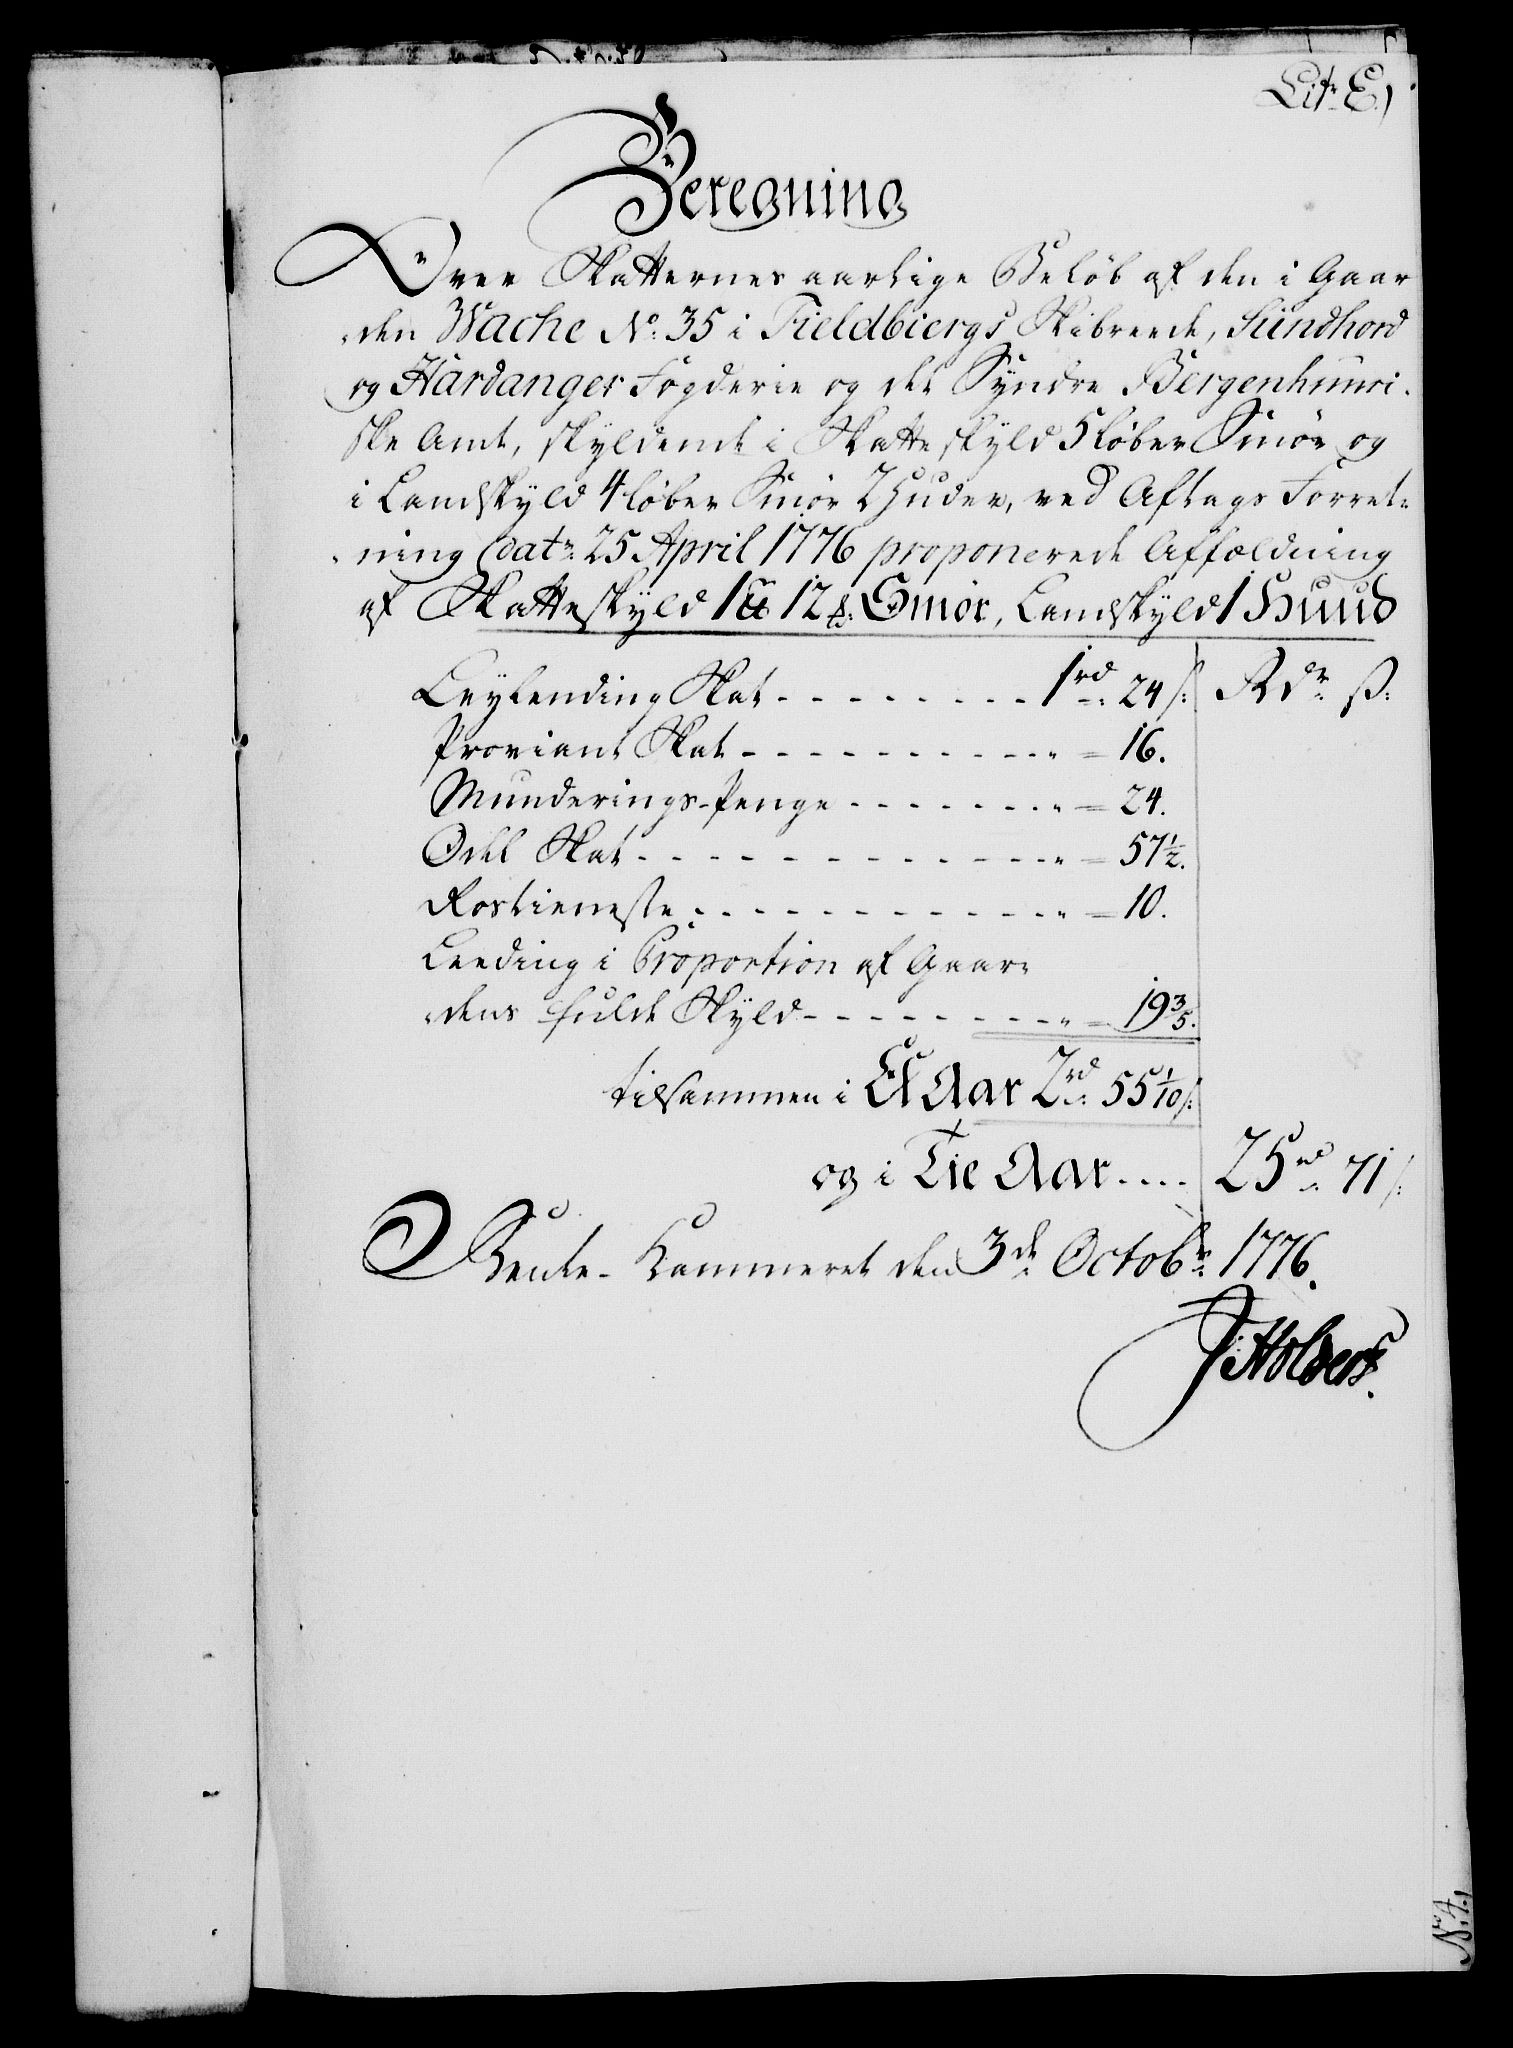 Litr E)
Beregning
Over Skatternes aarlige Beløb af den i Gaar
den Wache No. 35 i Fieldbiergs Skibreede, Sundhord
og Hardanger Fogderie og det Syndre Bergenhuusi-
ske Amt, skyldende i Skatteskyld 5 Løber Smør og
i Landskyld 4 Løber Smør 2 Huder, ved Aftags Forret-
ning datr 25 April 1776 proponerede Affældning
af Skatteskyld 12 Smör, Landskyld 1 Huud
Leylending Skat - - - - - - - - - 1rd 24 s: Rdr ß:
Proviant Skat - - - - - - - - - - - " = 16.
Munderings-Penge - - - - - - - " = 24.
Odel Skat - - - - - - - - - - - - - " = 57 1/2.
Rostieneste - - - - - - - - - - - - - " = 10.
Leeding i Proportion af Gaar-
dens fulde Skyld - - - - - - - - - " = 19 3/5.
tilsammen i Et Aar 2rd 55 1/10 s:
og i Tie Aar .... 25rd 71 s:
Rente-Kammeret den 3de Octobr 1776.
J Holbert.
No. 4.